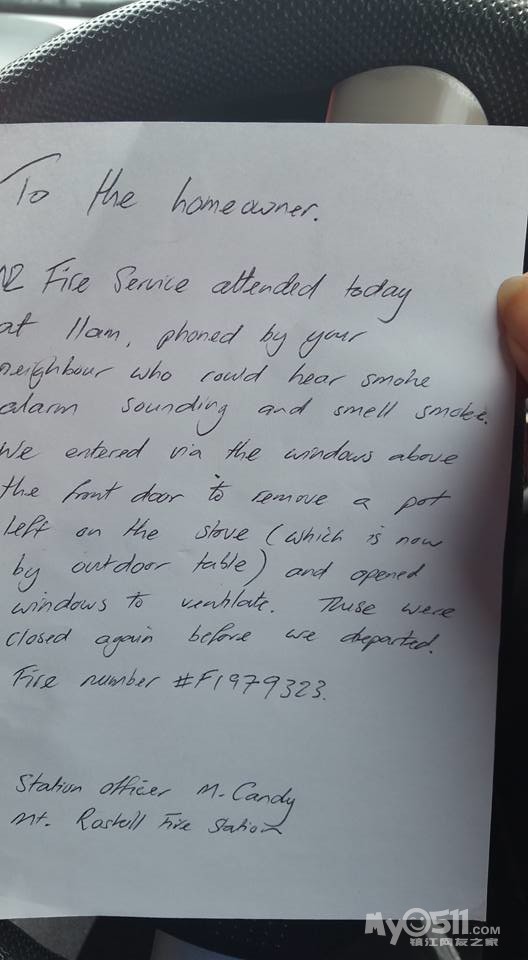 To the homeowner.
NZ Fire Service attended today
at 11am, phoned by your
neighbour who could hear smoke
alarm sounding and smell smoke.
We entered via the windows above
the front door to remove a pot
left on the stove (which is now
by outdoor table) and opened
windows to ventilate. These were
closed again before we departed.
Fire number #F1979323.
Station officer M. Candy
Mt. Roskill Fire Station
My0511.COM
镇江网友之家